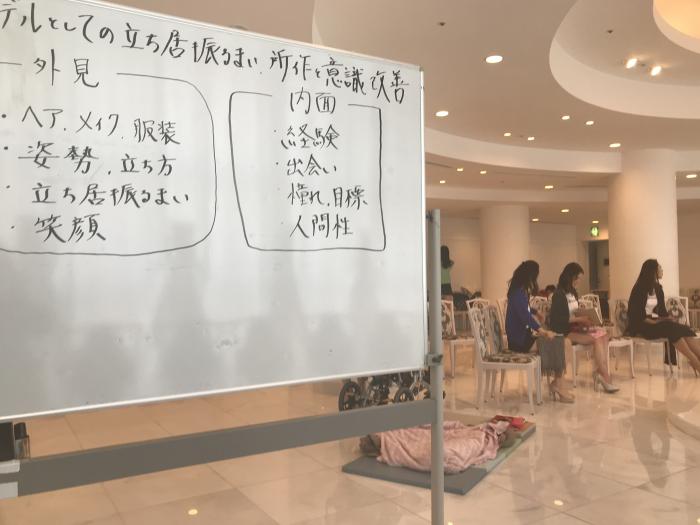 デルとしての立ち居振るまい、所作と意識改善
外見
・ヘア、メイク、服装
・姿勢、立ち方
・立ち居振るまい
・笑顔
内面
・経験
・出会い
・憧れ、目標
・人間性